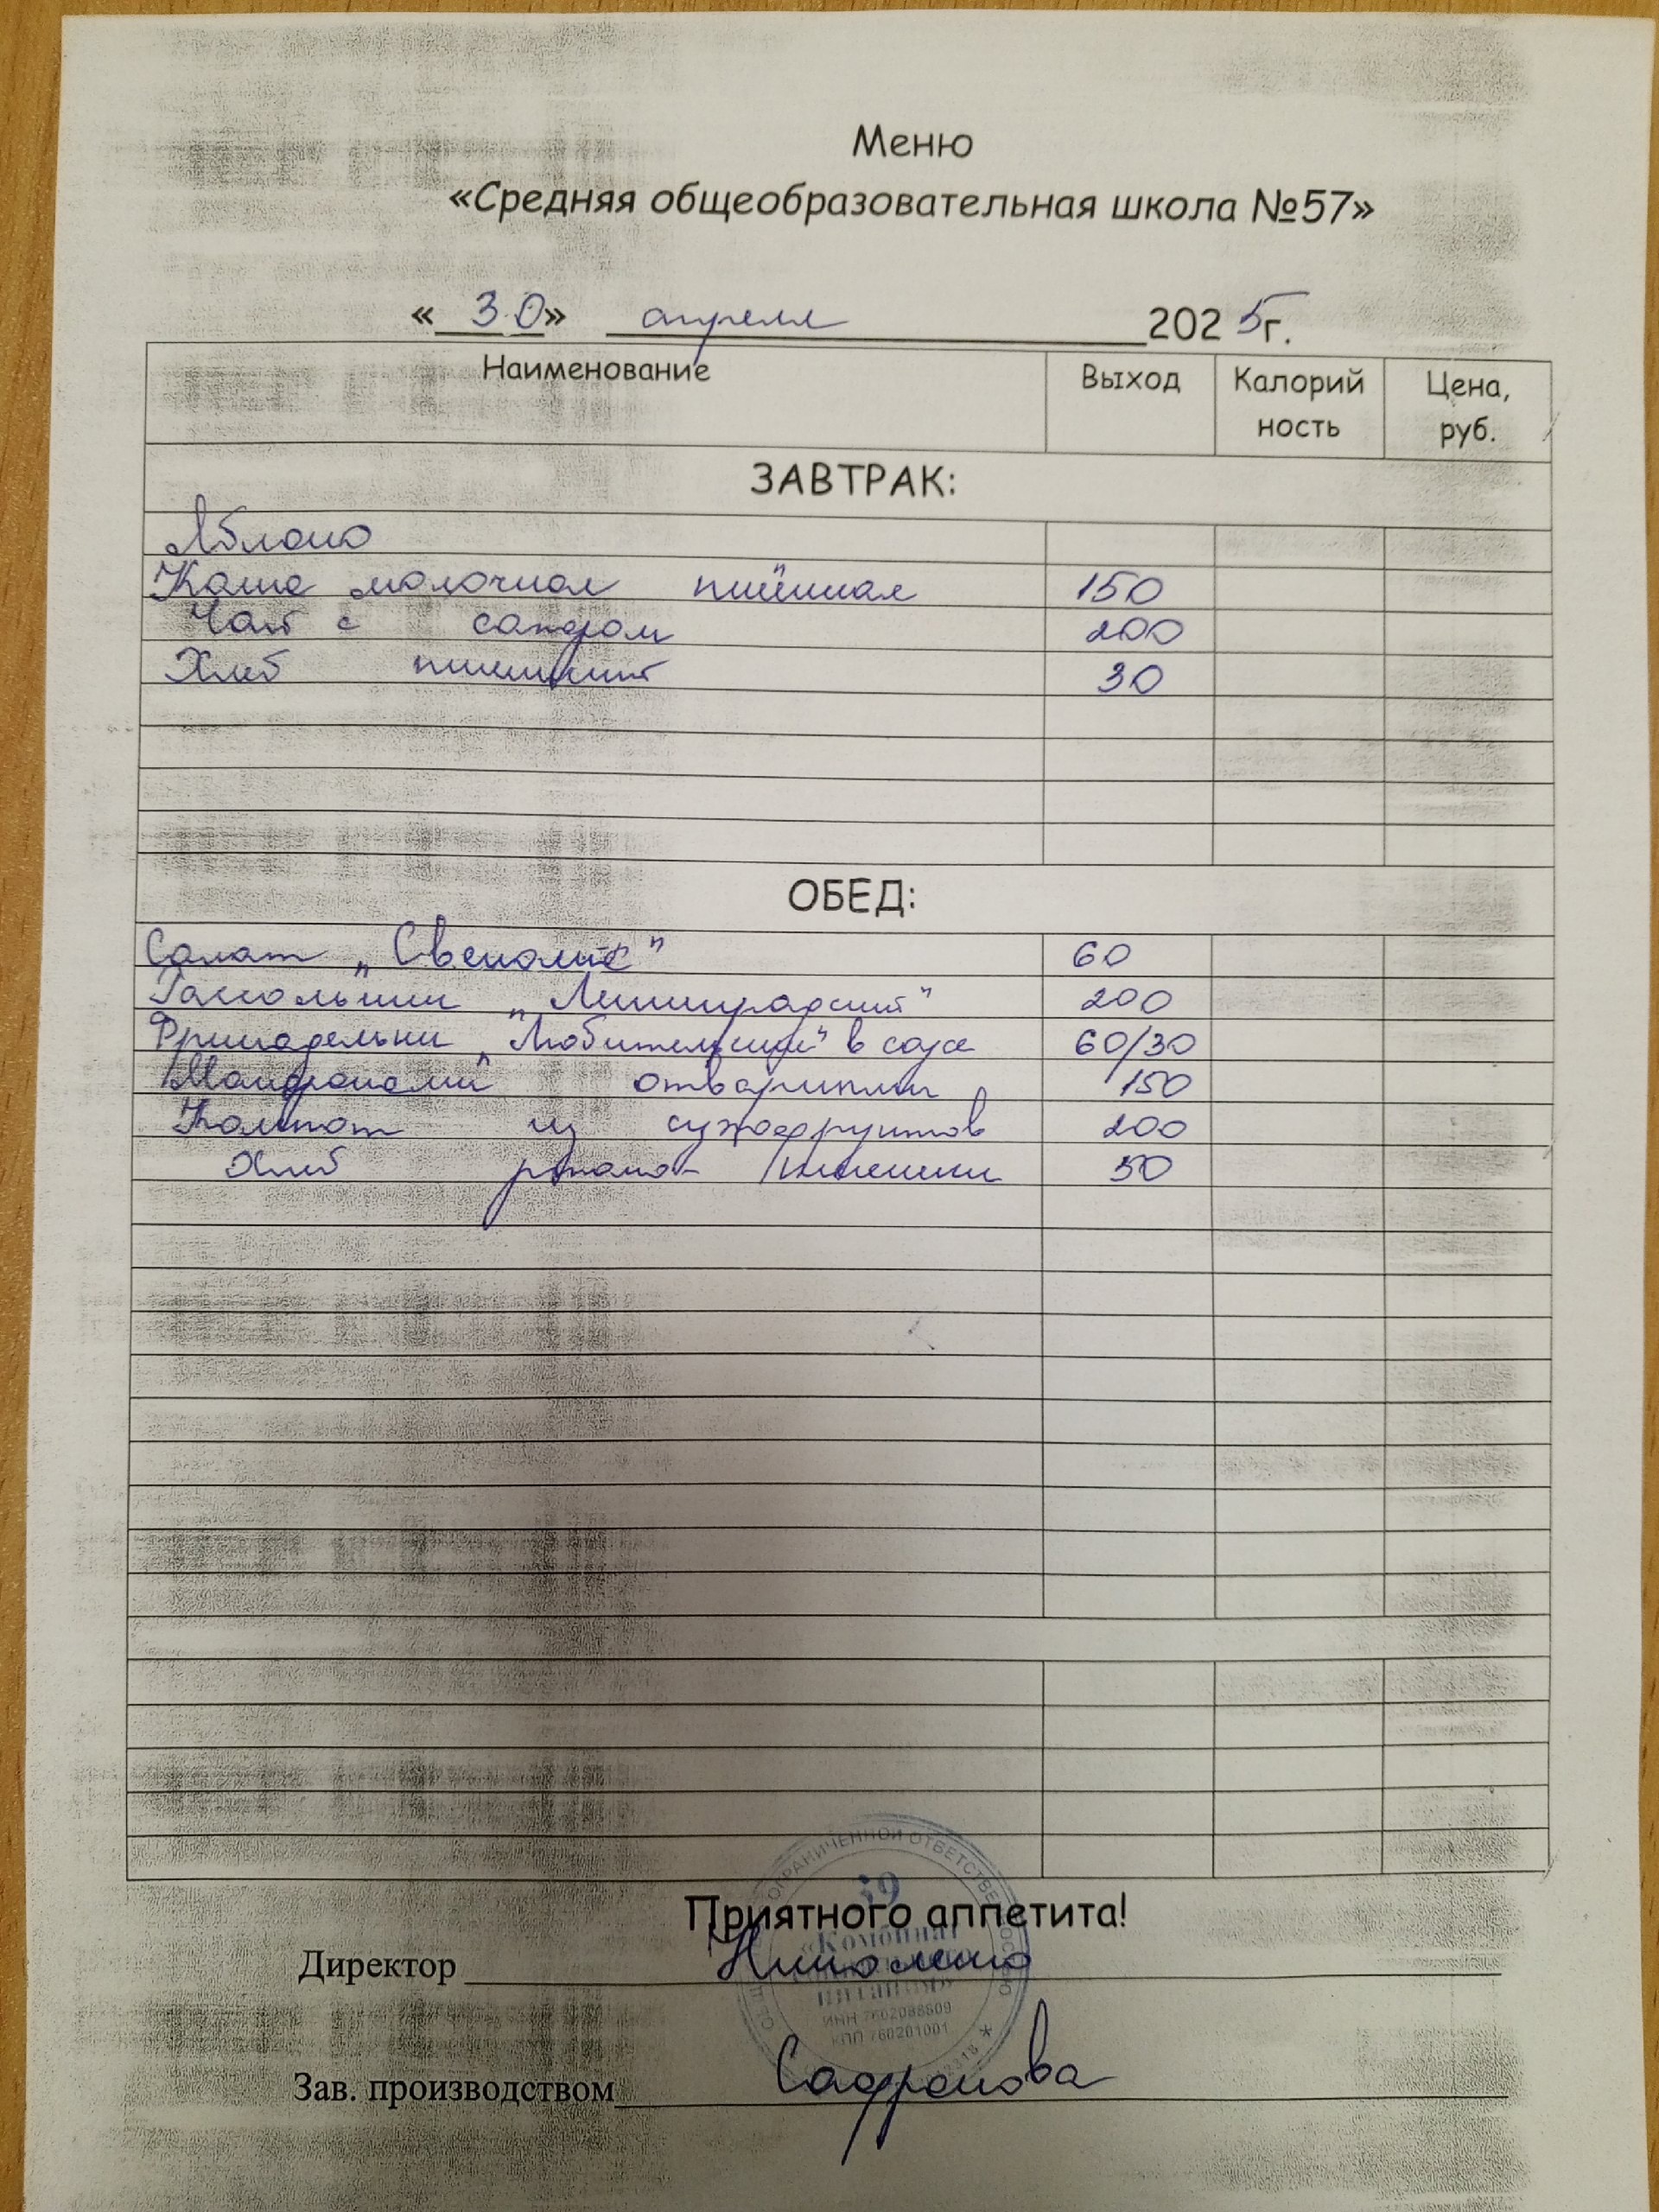 Меню
«Средняя общеобразовательная школа №57»
«30» апреля 2025г.
Наименование Выход Калорий Цена,
ность руб.
ЗАВТРАК:
Яблоко
Каша молочная пшённая 150
Чай с сахаром 200
Хлеб 30
ОБЕД:
Салат „Свеколка" 60
Рассольник „Ленинградский" 200
Фрикадельки „Любительские" в соусе 60/30
Макароны отварные 150
Компот из сухофруктов 200
Хлеб ржано- 50
Приятного аппетита!
ОГРАНИЧЕННОЙ ОТВЕТСТВЕННОСТЬЮ
«Комбинат
питания»
ИНН 7602088609
КПП 760201001
Директор
Зав. производством Сафронова